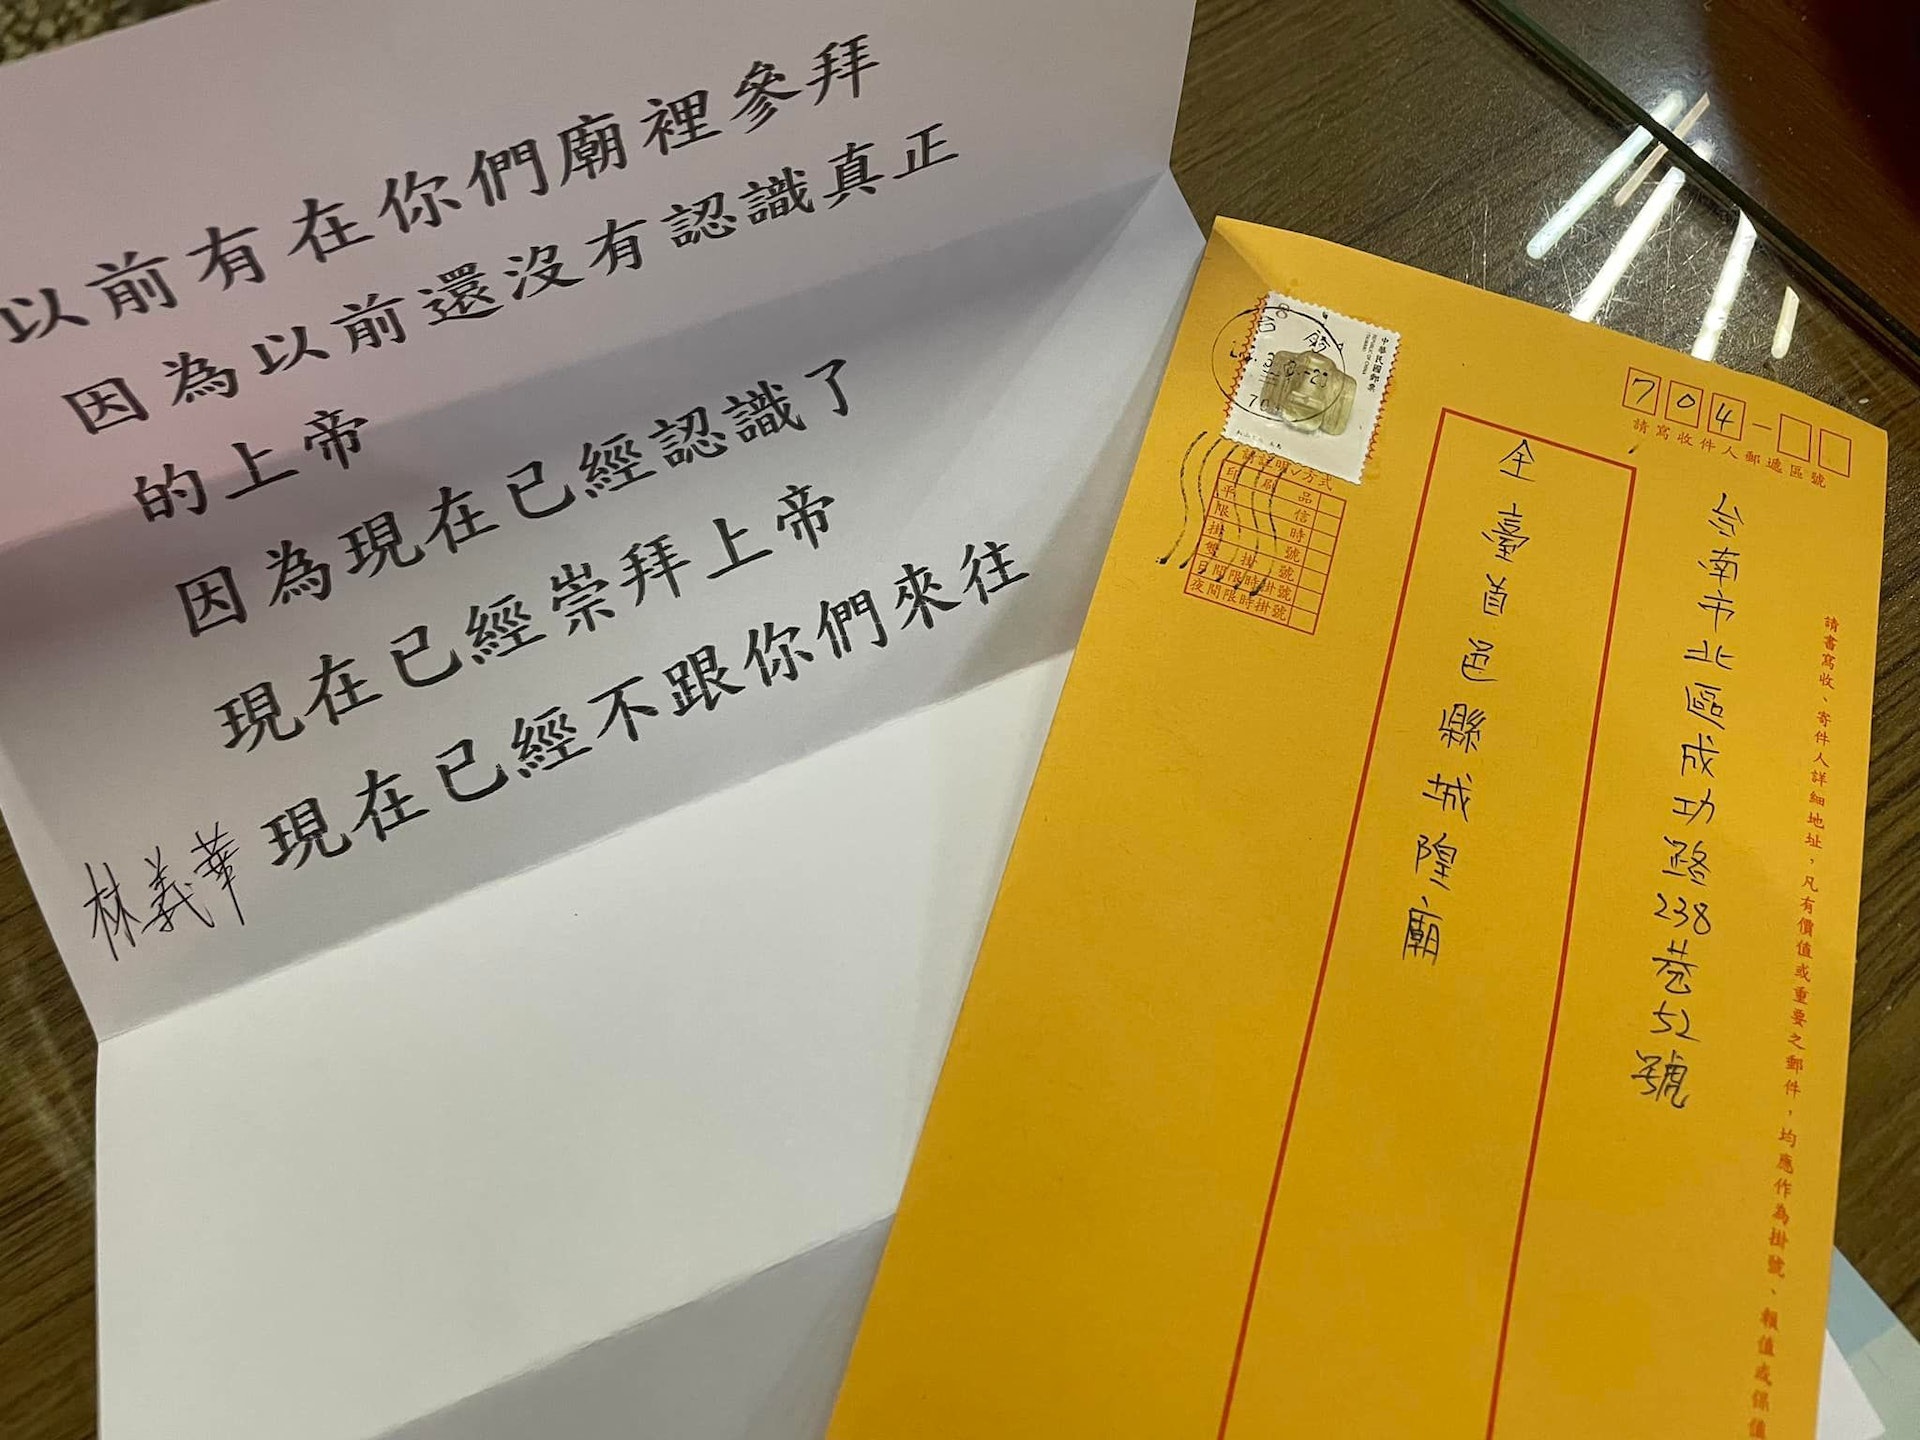 以前有在你們廟裡參拜
因為以前還沒有認識真正
的上帝
因為現在已經認識了
現在已經崇拜上帝
現在已經不跟你們來往
林義華
中華民國郵票
REPUBLIC OF CHINA
704
請寫收件人郵遞區號
請註明✓方式
印刷品
平信
限時
掛號
雙掛號
日間限時掛號
夜間限時掛號
請書寫收、寄件人詳細地址，凡有價值或重要之郵件，均應作為掛號、報值或保值
台南市北區成功路238巷52號
全臺首邑縣城隍廟